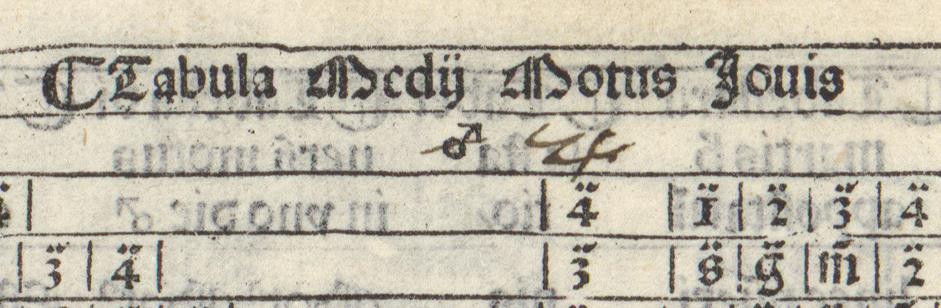 ☾Tabula Medij Motus Jouis
♂ ♃
4̈ 4̈ 1̈ 2̈ 3̈ 4̈
3̈ 4̈ 3̈ s̈ g̈ m̃ 2̈